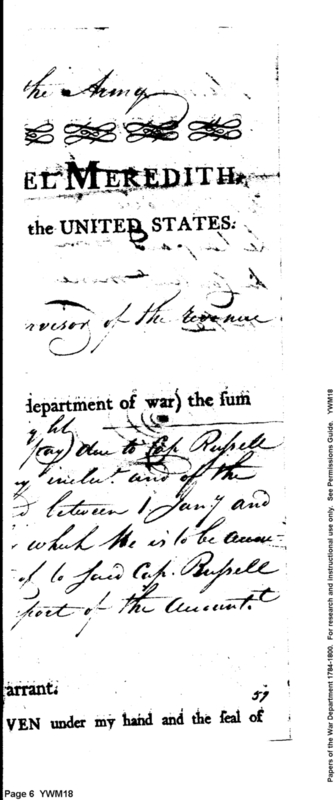 the Army
EL MEREDITH,
the UNITED STATES:
rvisor of the revenue
department of war) the ſum
(cay) due to Cap. Ruſsell
y inclus. and of the
between 1 Jany and
which He is to be accou-
of to said Cap. Ruſsell
port of the Amount.
arrant.
57
VEN under my hand and the ſeal of
Papers of the War Department 1784-1800. For research and instructional use only. See Permissions Guide. YWM18
Page 6 YWM18